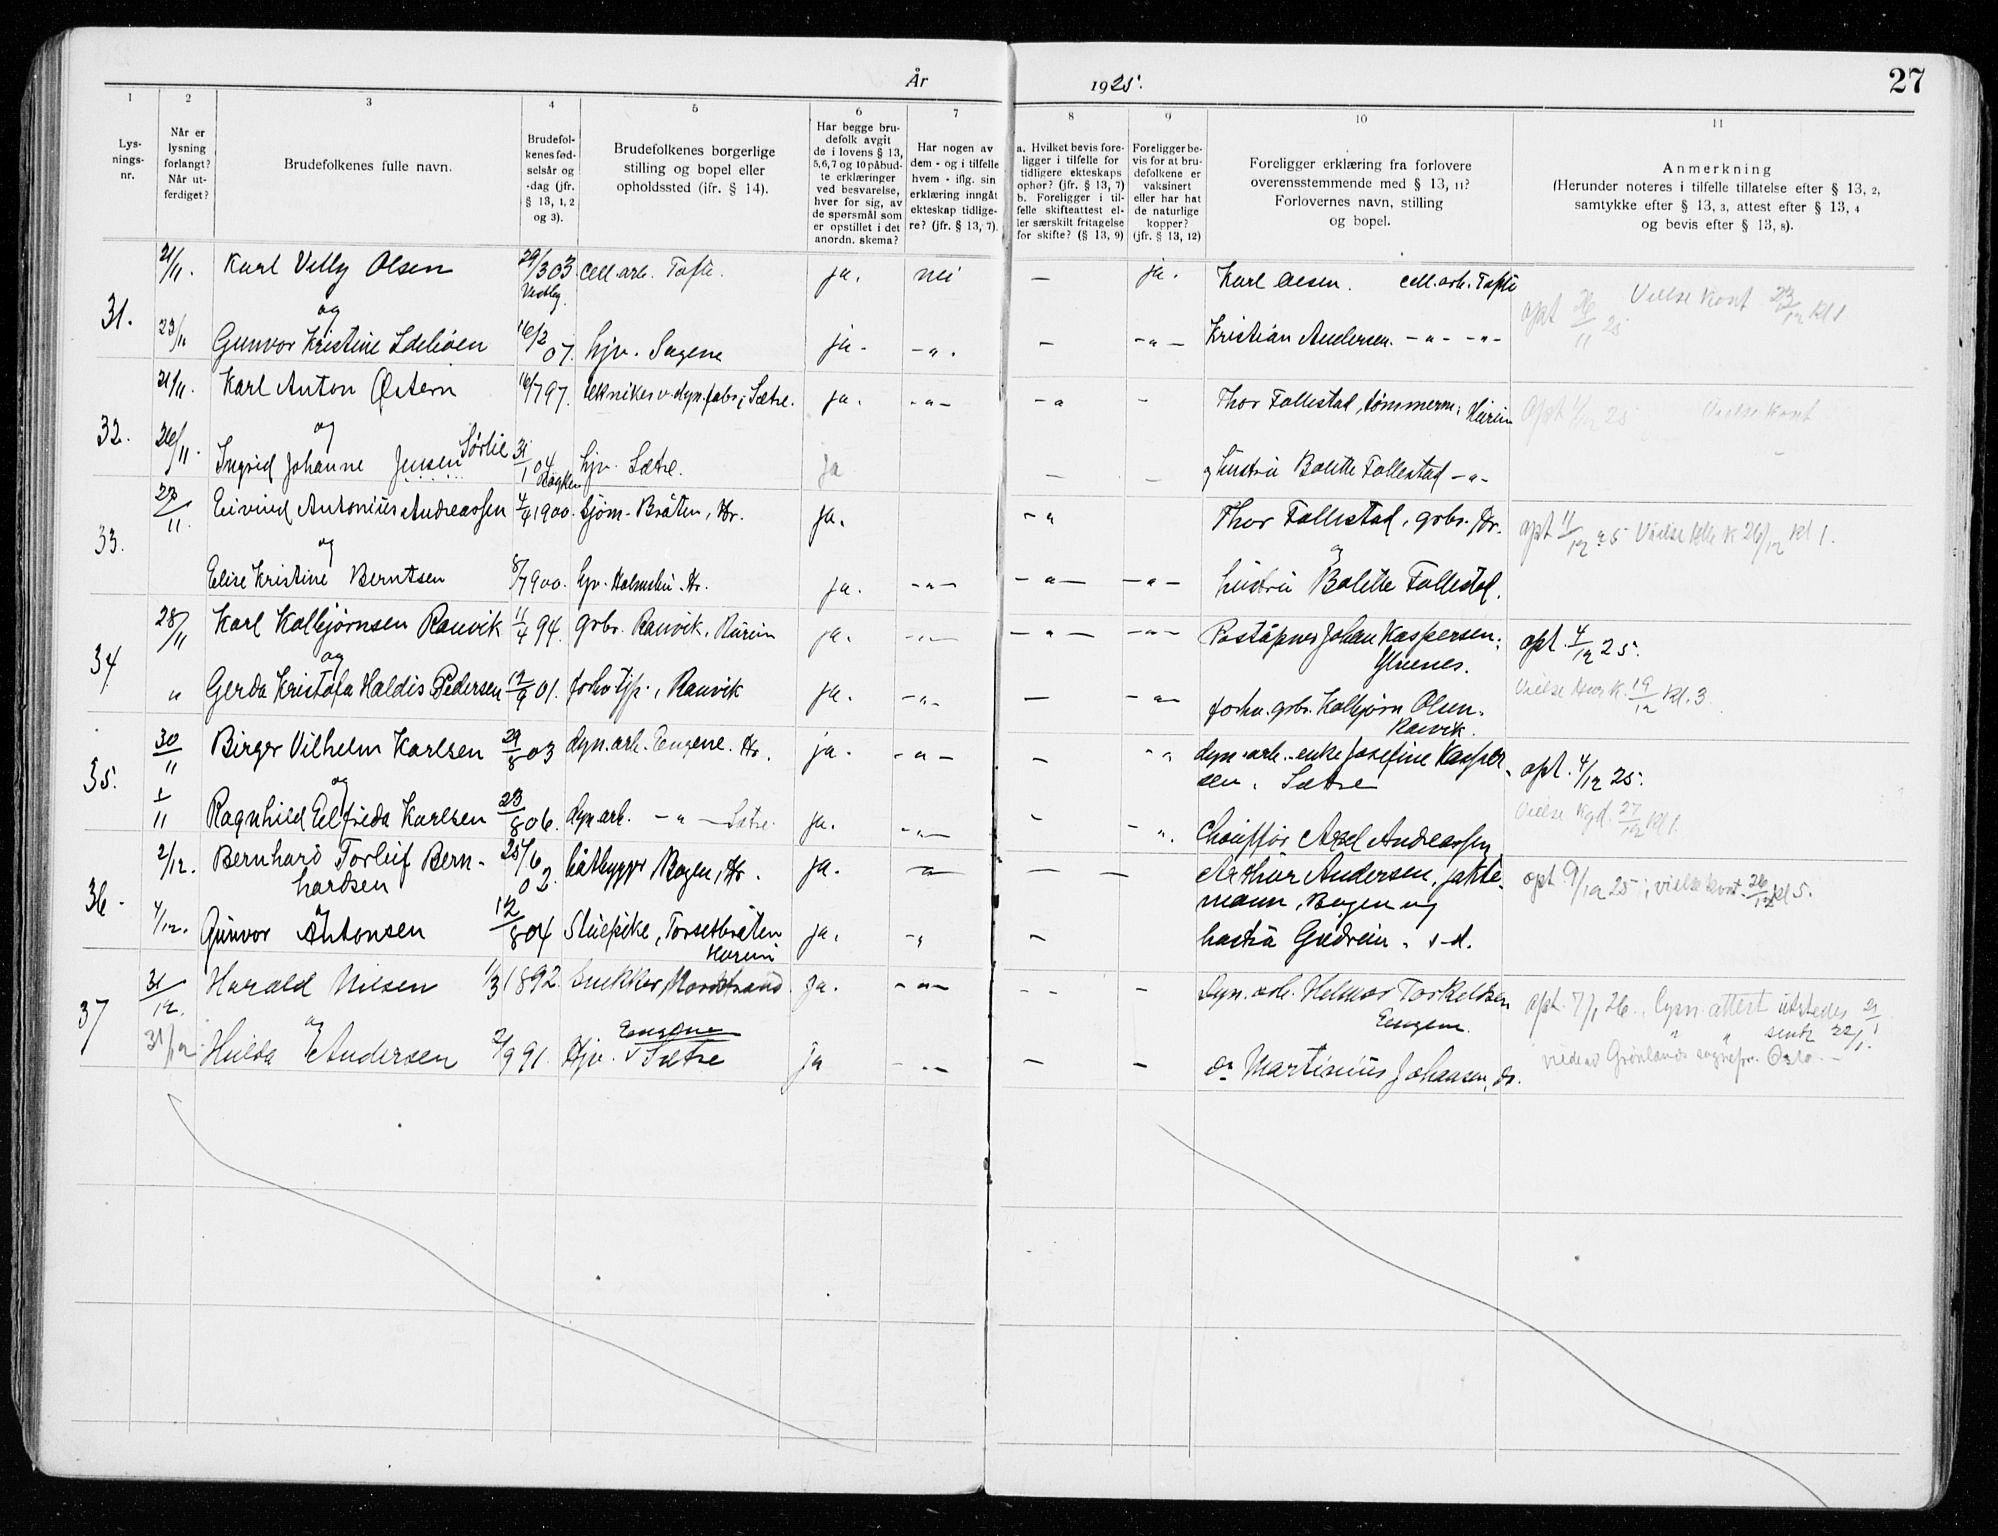 År 1925. 27
1 2 3 4 5 6 7 8 9 10 11
Lysningsnr.
Når er lysning forlangt? Når utferdiget?
Brudefolkenes fulle navn.
Brudefolkenes fødselsår og -dag (jfr. § 13, 1, 2 og 3).
Brudefolkenes borgerlige stilling og bopel eller opholdssted (ifr. § 14).
Har begge brudefolk avgit de i lovens § 13, 5,6,7 og 10 påbudte erklæringer ved besvarelse, hver for sig, av de spørsmål som er opstillet i det anordn. skema?
Har nogen av dem - og i tilfelle hvem - iflg. sin erklæring inngåt ekteskap tidligere? (jfr. § 13, 7).
a. Hvilket bevis foreligger i tilfelle for tidligere ekteskaps ophør? (jfr. § 13, 7) b. Foreligger i tilfelle skifteattest eller særskilt fritagelse for skifte? (§ 13, 9)
Foreligger bevis for at brudefolkene er vaksinert eller har hat de naturlige kopper? (jfr. § 13, 12)
Foreligger erklæring fra forlovere overensstemmende med § 13, 11? Forlovernes navn, stilling og bopel.
Anmerkning (Herunder noteres i tilfelle tillatelse efter § 13, 2, samtykke efter § 13, 3, attest efter § 13, 4 og bevis efter § 13, 8).
31. 21/11. Karl Villy Olsen 29/3 03 Vestby. cell. arb. Tofte. ja. nei — ja. Karl Olsen. cell. arb. Tofte opt 26/11 25 Vielse Kont 23/12 kl 1
og
23/11 Gunvor Kristine 16/2 07. hjv. Sagene ja. -„. — -„- Kristian Andersen. -„- -„-
32. 21/11. Karl Anton Østern 16/7 97. tekniker v. dyn. fabr, Sætre. ja. -„- -„ - Thor Follestad, tømmerm; Hurum opt 1/12 25 Vielse Kont
og
26/11. Ingrid Johanne Jensen Sørlie 31/1 04 Røyken hjv. Sætre. ja — — hustru Bolette Follestad -„-
33. 27/11 Eivind Antonius Andreassen 4/4 1900. sjøm. Bråten, Hr. ja. -„ Thor Follestad, grbr. Hr. opt 11/12 25 Vielse K 26/12 kl 1.
og
Elise Kristine Berntsen 8/7 900. hjv. Holmsbu. Hr. ja. -„- -„- -„- hustru Bolette Follestad.
34 28/11 Karl Kolbjørnsen Ranvik 11/4 94. grbr. Ranvik, Hurum ja. -„- -„- -„- Poståpner Johan Kaspersen; opt. 4/12 25.
og
„ Gerda Kristofa Haldis Pedersen 12/9 01. forhv. tjp., Ranvik ja. -„- — -„- forhv. grbr. Kolbjørn Olsen. Ranvik. Vielse Hur k. 19/12 kl. 3
35. 30/11 Birger Vilhelm Karlsen 29/8 03 dyn. arb. Engene. Hr. ja. -„- — -„ dyn. arb. enke Josefine Kaspersen, Sætre opt. 4/12 25.
og
1/11 Ragnhild Elfrida Karlsen 23/8 06. dyn arb. -„- Sætre. ja. -„- - -„. Chauffør Axel Andreassen Vielse Kgd. 27/12 kl 1.
36. 2/12. Bernhard Torleif Bernhardsen 25/6 02. båtbygger Bogen, Hr. ja. -„- — — Arthur Andersen, jaktemann, Bogen og opt. 9/12 25; vielse kont. 26/12 kl 5.
og
4/12. Gunvor Antonsen 12/8 04 Stuepike, Torsetbråten Hurum ja. -„ — hustru Gudrun. s-d.
37 31/12. Harald Nilsen 1/3 1892. Snekker, Nordstrand. ja. -„- -- - Dyn. arb. Helmer Torkelsen Engene. opt. 7/1 26. lysn. attest utstedes 21/1
og
31/12 Hulda Andersen 2/9 91. Hjv. Engene Sætre ja -„- — — do Martinius Johansen, do. „ „ sendt 22/1. viede av Grønlands sognepr. Oslo. —